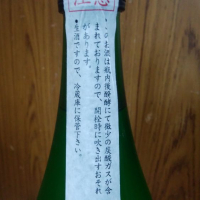 注意
●このお酒は瓶内後醗酵にて微少の炭酸ガスが含
まれておりますので、開栓時に吹き出すおそれ
があります。
●生酒ですので、冷蔵庫に保管下さい。